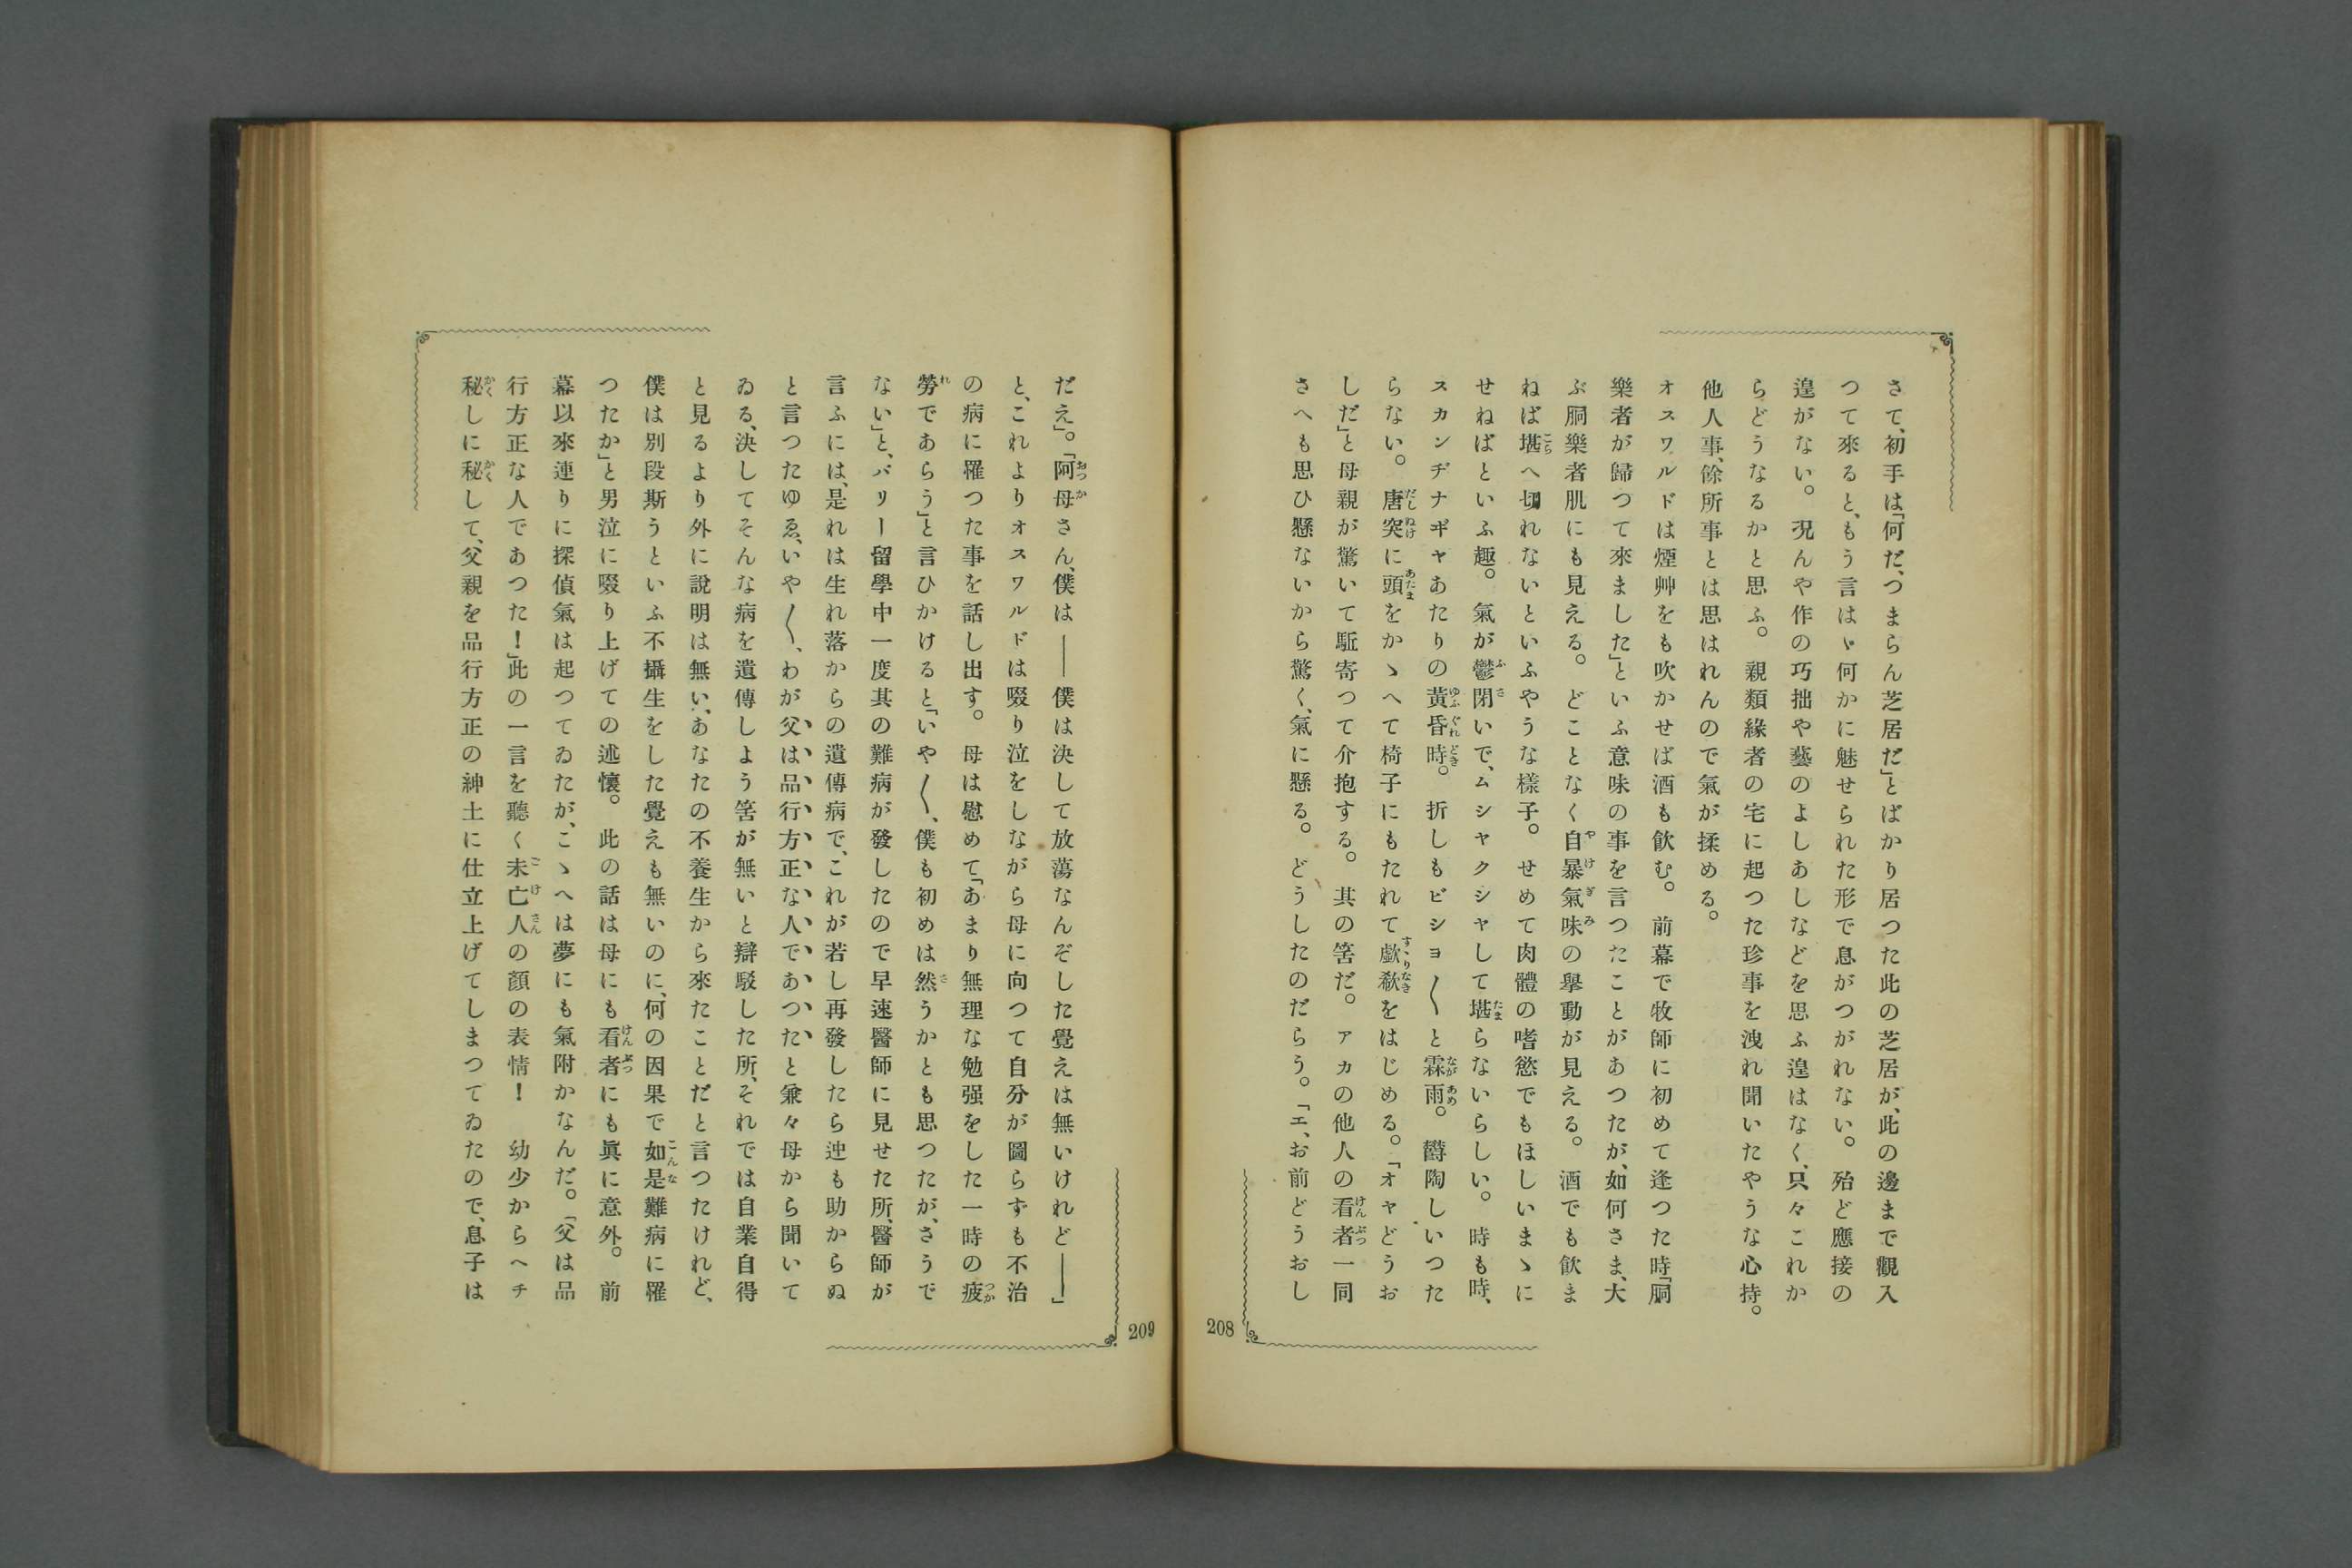 さて、初手は「何だ、つまらん芝居だ」とばかり居つた此の芝居が、此の邊まで觀入
つて來ると、もう言はゞ何かに魅せられた形で息がつがれない。殆ど應接の
遑がない。况んや作の巧拙や藝のよしあしなどを思ふ遑はなく、只々これか
らどうなるかと思ふ。親類緣者の宅に起つた珍事を洩れ聞いたやうな心持。
他人事、餘所事とは思はれんので氣が揉める。
オスワルドは煙艸をも吹かせば酒も飮む。前幕で牧師に初めて逢つた時「胴
樂者が歸つて來ました」といふ意味の事を言つたことがあつたが、如何さま、大
ぶ胴樂者肌にも見える。どことなく自暴氣味の擧動が見える。酒でも飮ま
ねば堪へ切れないといふやうな樣子。せめて肉體の嗜慾でもほしいまゝに
せねばといふ趣。氣が鬱閉いで、ムシャクシャして堪らないらしい。時も時、
スカンヂナヸヤあたりの黃昏時。折しもビショ〱と霖雨。欝陶しいつた
らない。唐突に頭をかゝへて椅子にもたれて歔欷をはじめる。「オヤどうお
しだ」と母親が驚いて駈寄つて介抱する。其の筈だ。アカの他人の看者一同
さへも思ひ懸ないから驚く、氣に懸る。どうしたのだらう。「エ、お前どうおし
208
だえ」。「阿母さん、僕は――僕は決して放蕩なんぞした覺えは無いけれど――」
と、これよりオスワルドは啜り泣をしながら母に向つて自分が圖らずも不治
の病に罹つた事を話し出す。母は慰めて「あまり無理な勉强をした一時の疲
勞であらう」と言ひかけると、「いや〱、僕も初めは然うかとも思つたが、さうで
ない」と、パリー留學中一度其の難病が發したので早速醫師に見せた所、醫師が
言ふには、是れは生れ落からの遺傳病で、これが若し再發したら迚も助からぬ
と言つたゆゑ、いや〱、わが父は品行方正な人であつたと兼々母から聞いて
ゐる、決してそんな病を遺傳しよう筈が無いと辯駁した所、それでは自業自得
と見るより外に說明は無い、あなたの不養生から來たことだと言つたけれど、
僕は別段斯うといふ不攝生をした覺えも無いのに、何の因果で如是難病に罹
つたか」と男泣に啜り上げての述懷。此の話は母にも看者にも眞に意外。前
幕以來連りに探偵氣は起つてゐたが、こゝへは夢にも氣附かなんだ。「父は品
行方正な人であつた！」此の一言を聽く未亡人の顏の表情！　幼少からヘチ
秘しに秘して、父親を品行方正の紳士に仕立上げてしまつてゐたので、息子は
209